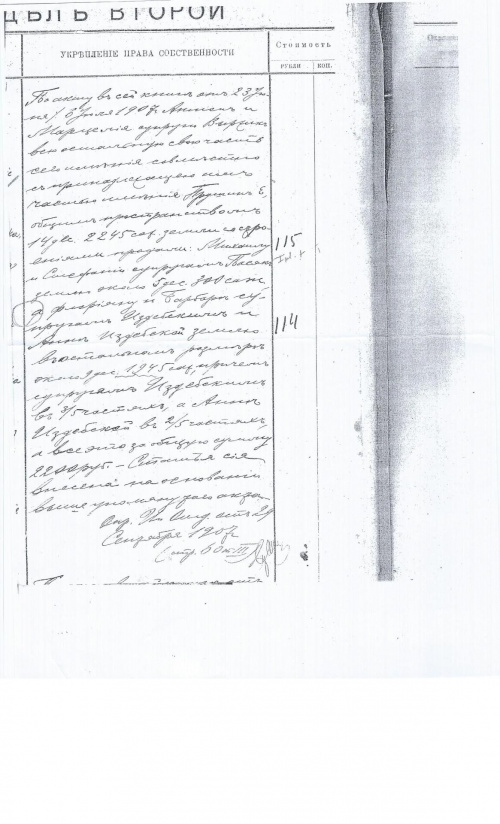 ДѢЛЪ ВТОРОЙ
УКРѢПЛЕНІЕ ПРАВА СОБСТВЕННОСТИ
Стоимость
РУБЛИ
КОП.
По акту въ сей книгѣ отъ 23 Iю
ня / 6 Iюля 1907 г. Антонъ и
Марцелія супруги
всю остальную свою часть
сего имѣнія совмѣстно
съ принадлежащею имъ
частью имѣнія Е,
общимъ пространствомъ
14 дес. 2245 саж. земли со стро
еніями продали: Михаилу
и Стефаніи супругамъ
землю около 5 дес. 300 саж.
а Флоріану и Барбарѣ су-
пругамъ Издебскимъ и
Аннѣ Издебской землю
въ остальномъ размѣрѣ
около 9 дес. 1945 саж., причемъ
супругамъ Издебскимъ
въ 3/5 частяхъ, а Аннѣ
Издебской въ 2/5 частяхъ,
а все это за общую сумму
2200 руб. – Статья сія
внесена на основаніи
выше упомянутаго акта
отъ 24
Сентября 1907 г.
115
114